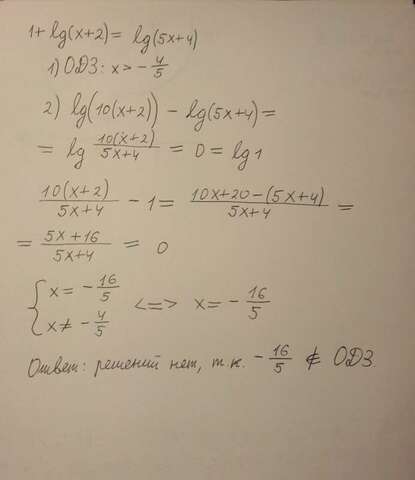 1+ lg(x+2) = lg(5x+4)
1) ОДЗ: x > - 4/5
2) lg(10(x+2)) - lg(5x+4) =
= lg 10(x+2)/5x+4 = 0 = lg 1
10(x+2)/5x+4 - 1 = 10x+20-(5x+4)/5x+4 =
= 5x+16/5x+4 = 0
{ x = - 16/5
x ≠ - 4/5 <=> x = - 16/5
Ответ: решений нет, т.к. - 16/5 ∉ ОДЗ.